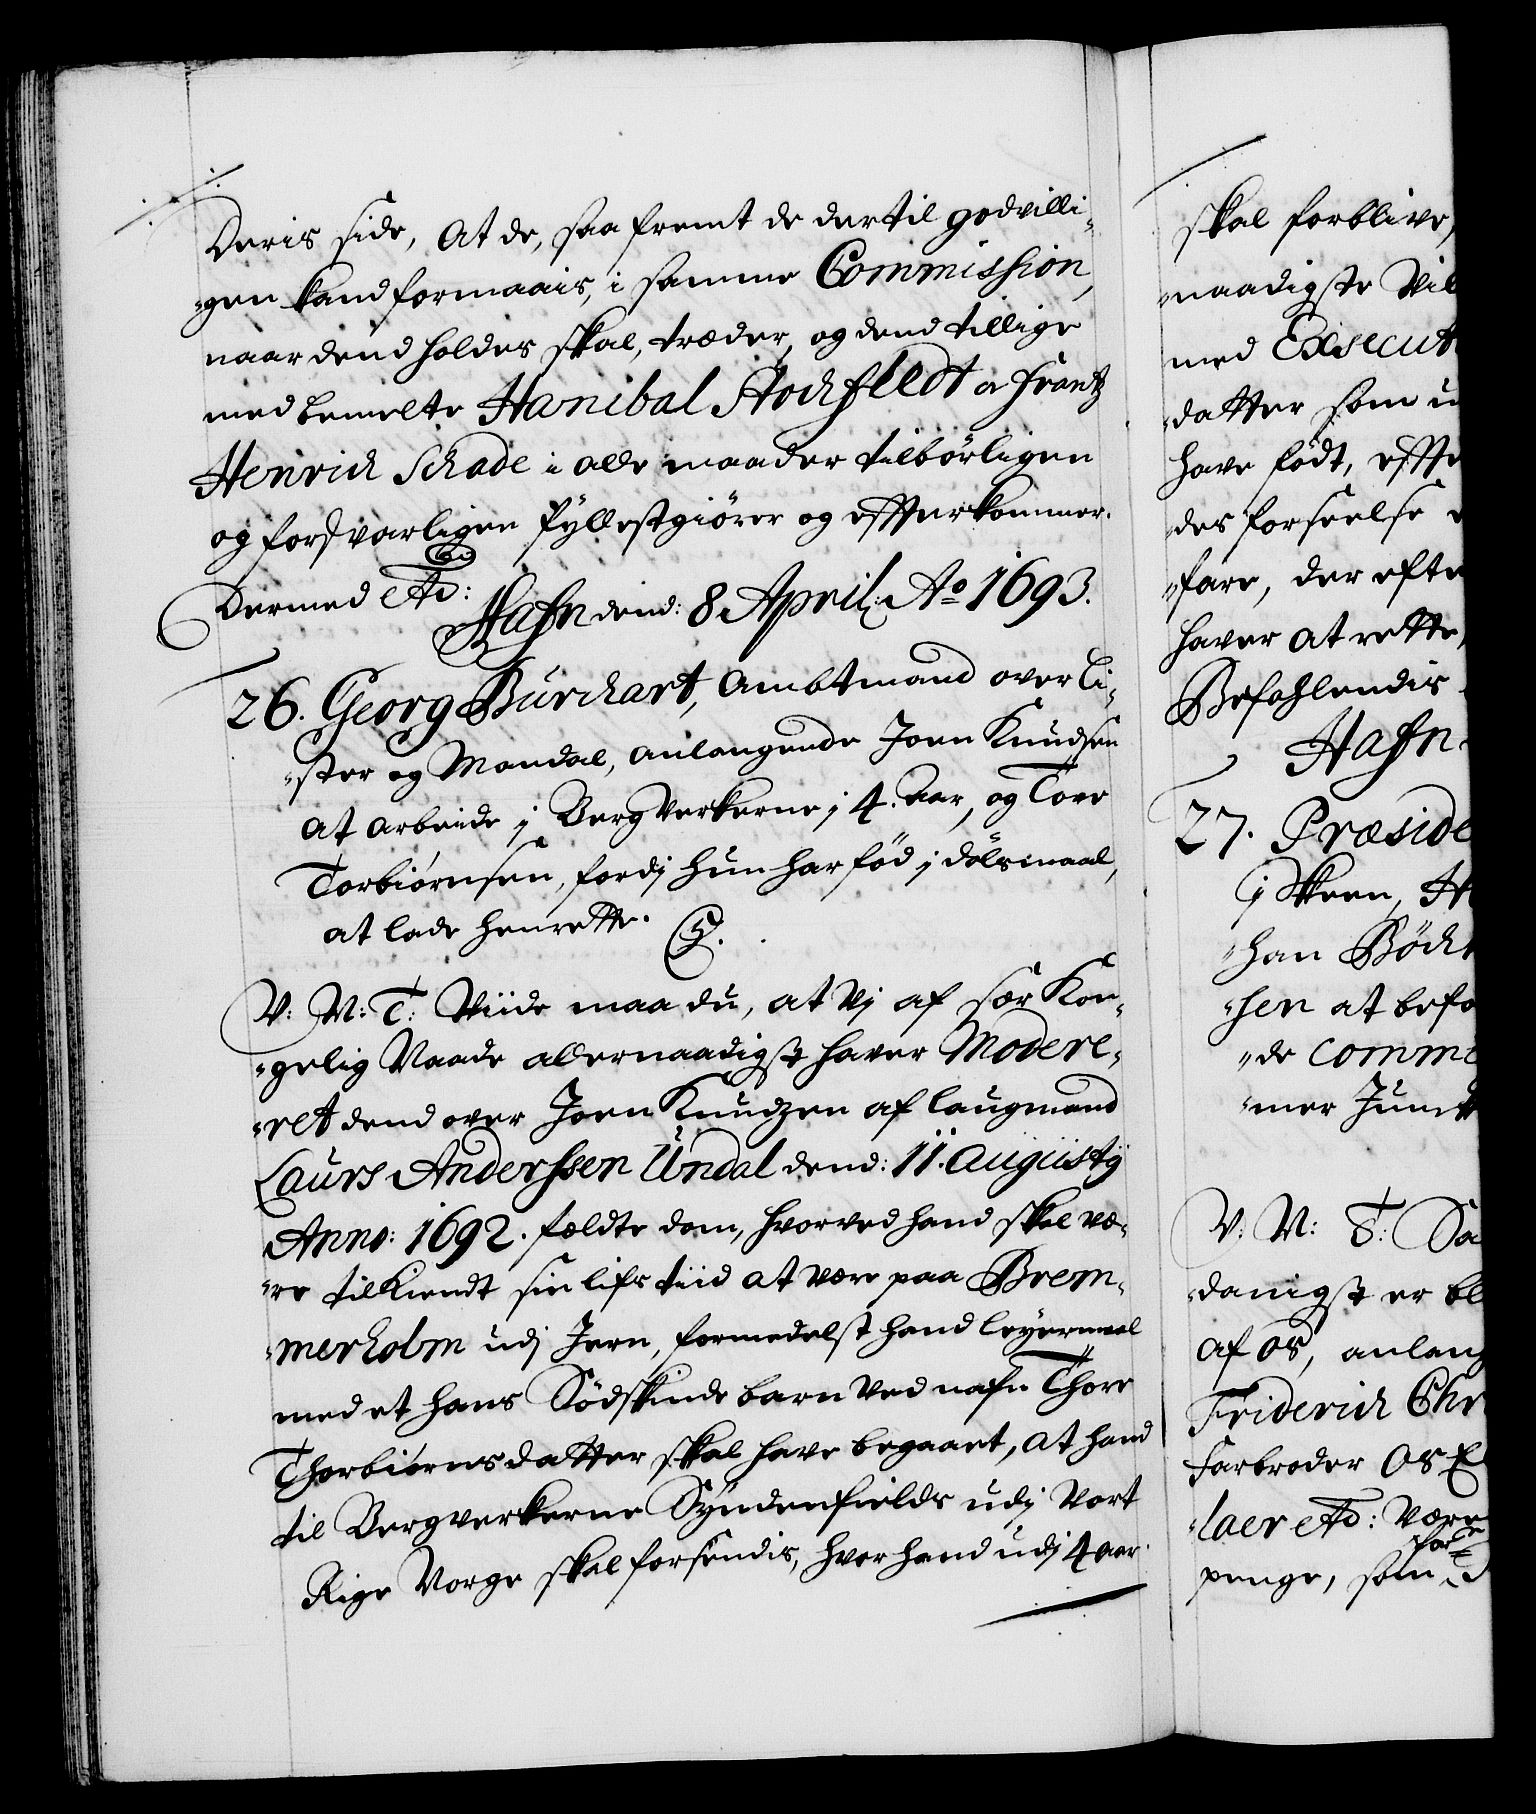 Deris side, At de, saa fremt de dertil godvilli-
-gen kand formaais, i samme Commission,
naar dend holdes skal, træder, og dend tillige
med bemelte Hanibal Stochfledt oc Frantz
Henrich Schade i alle maader tilbörligen
og forsvarligen fyllestgiörer og effterkommer.
Dermed etc:
Hafn dend: 8 April: Ao 1693.
26. Georg Burchart, Ambtmand over Li-
-ster og Mandal, anlangende Joen Knudsen
at arbeide j Bergverkerne j 4. Aar, og Tore
Torbiörnsen, fordj hun har fød j dölsmaal,
at lade henrette. G.
V: N: T: Viide maa du, at Vj af sær Kon-
-gelig Naade allernaadigst haver Modere-
-ret dend over Joen Knudzen af laugmand
Laurs Anderssen Undal dend: 11. Augustij
Anno: 1692. fældte dom, hvorved hand skal væ-
-re tilkiendt sin lifs tiid at være paa Brem-
-merholm udj Jern, formedelst hand leyermaal
med et hans Södskinde barn ved nafn Thore
Thorbiörnsdatter skal have begaaet, at hand
til Bergverkerne Syndenfields udj Vort
Rige Norge skal forsendis, hvor hand udj 4 aar
skal forblive,
-naadigste Vil
med Execut
-datter som u
have födt, effte
-des forseelse
-fare, der efte
haver at rette,
Befahlendis
Hafn
27. Præside
j Skeen, H
-han Böch
-sen at befo
-de Comme
-mer Junck
V: N: T: Sa
-danigst er bl
af os, anlang
Friderich Chr
Farbroder Os E
-laer etc: Være
for
penge, som